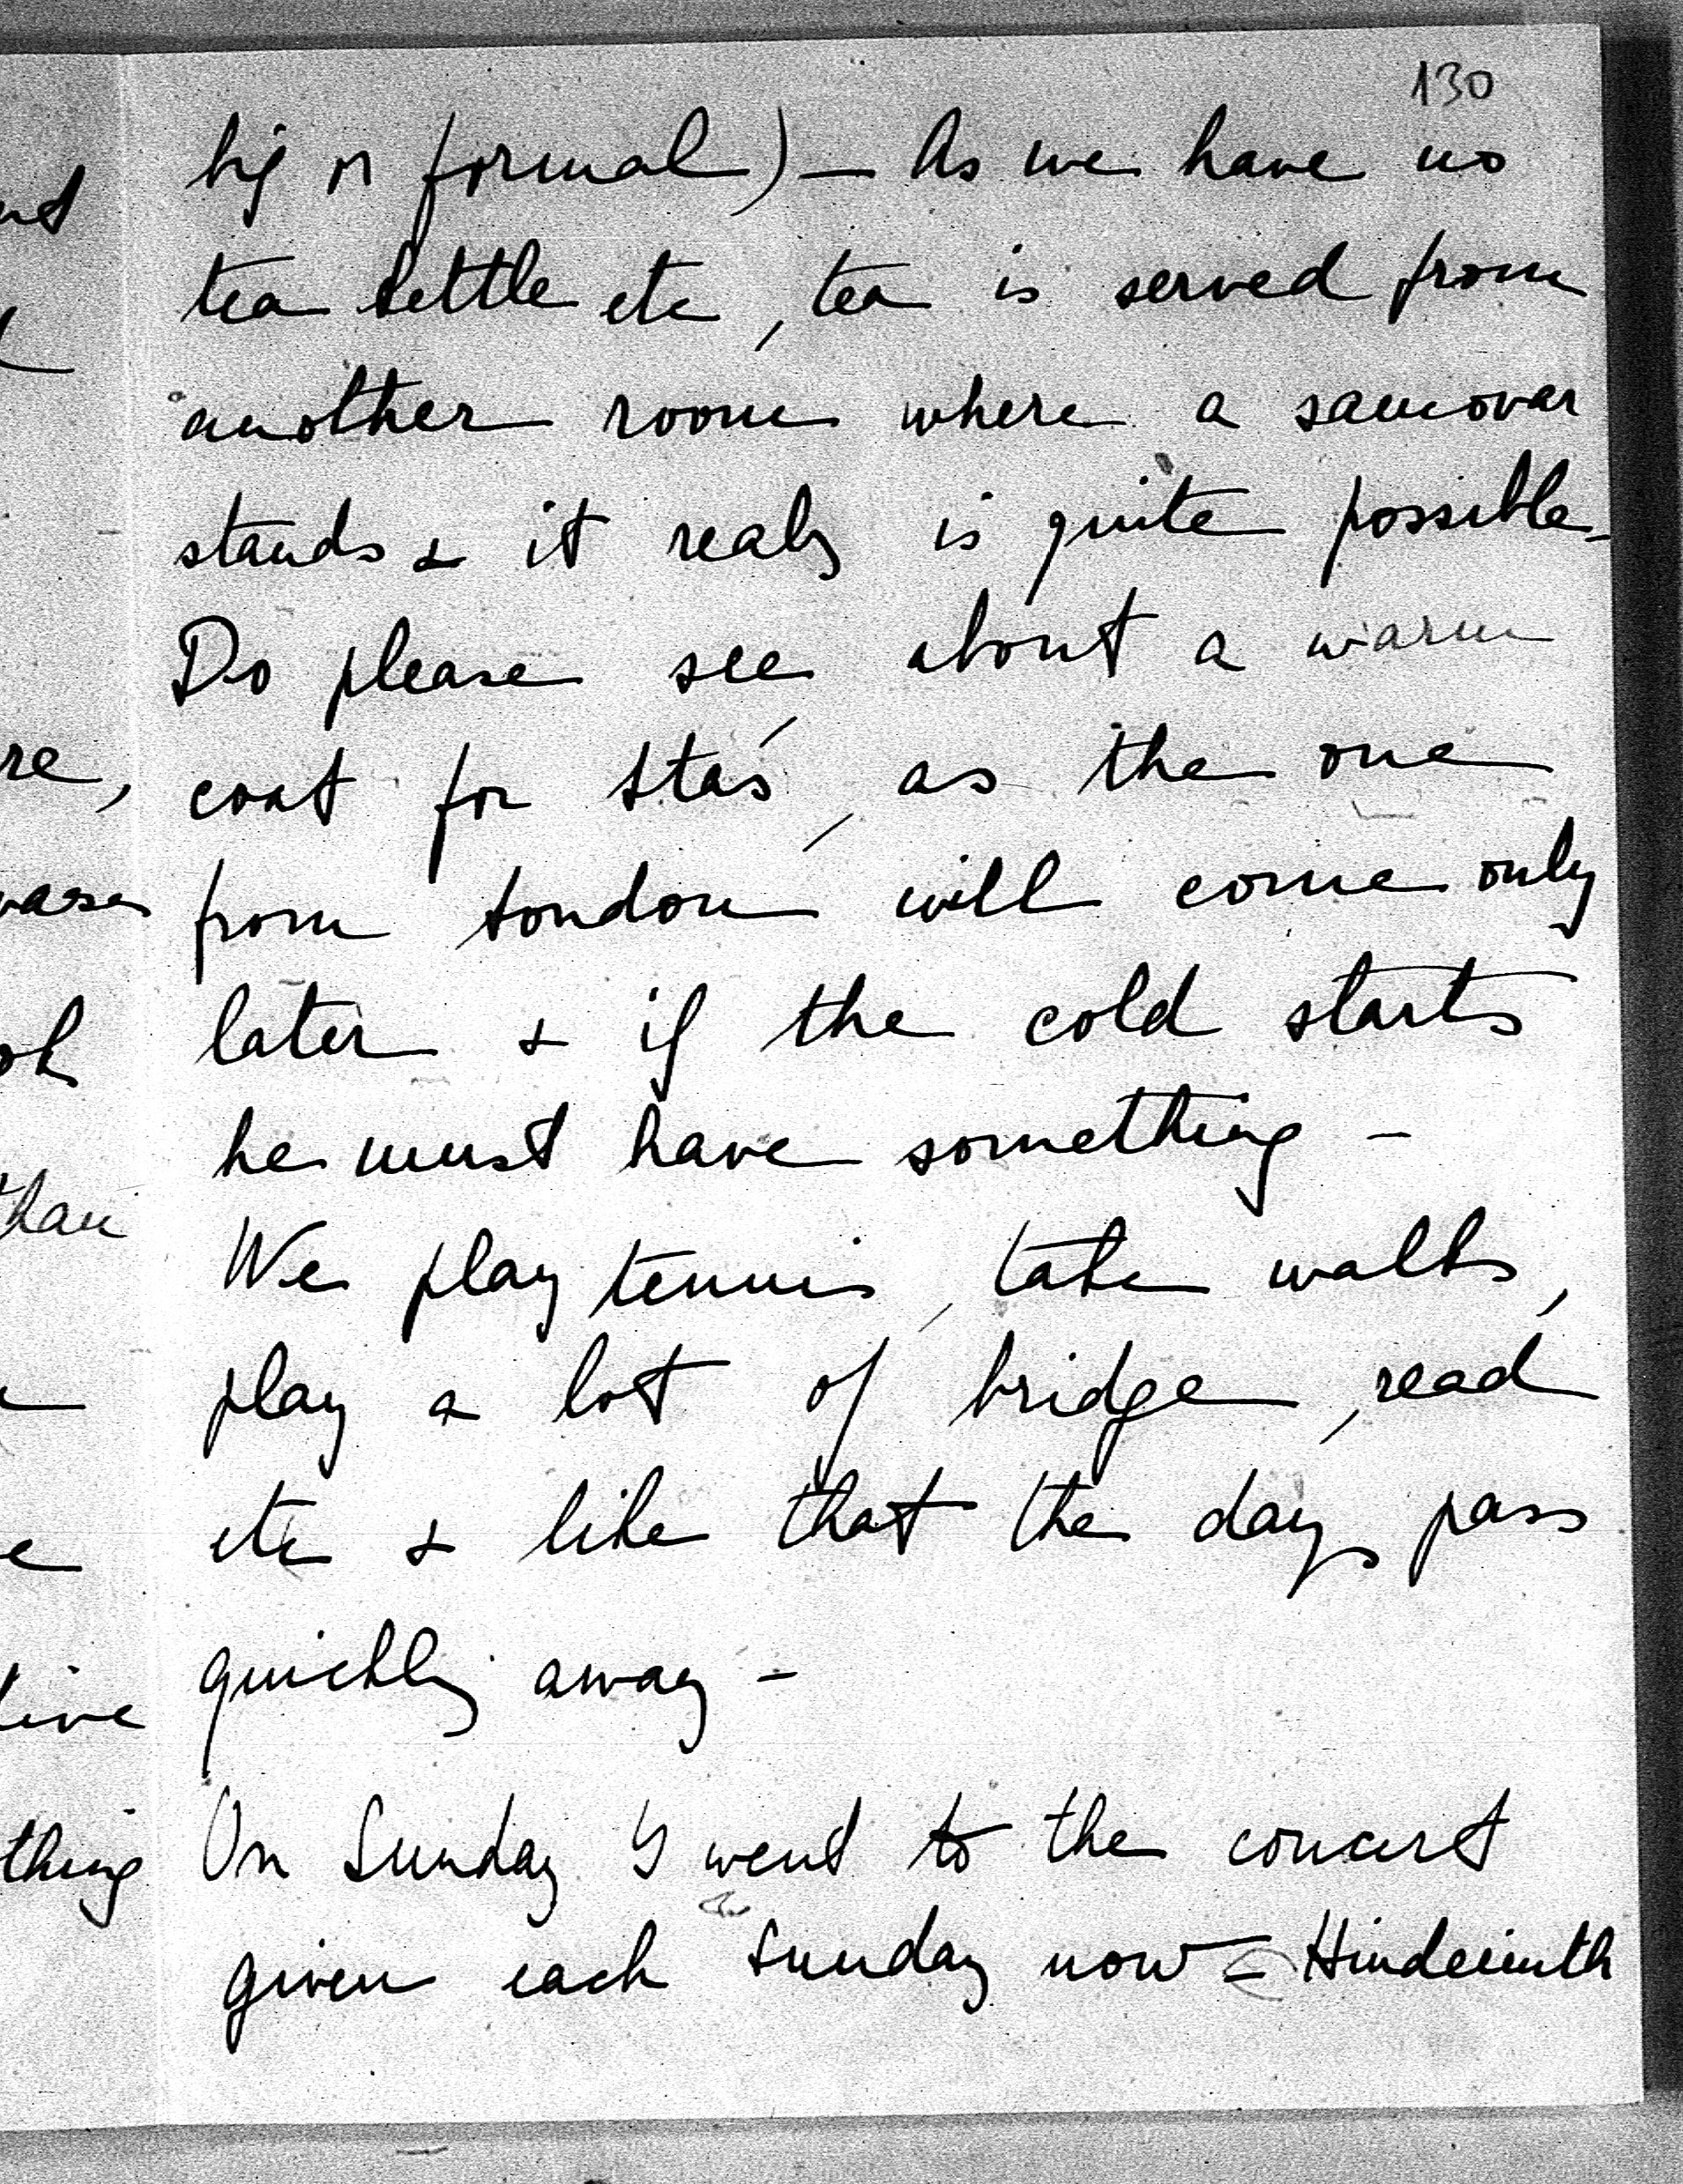 130
big or formal) – As we have no
tea kettle etc, tea is served from
another room where a samovar
stands & it realy is quite possible –
Do please see about a warm
coat for Staś, as the one
from London will come only
later & if the cold starts
he must have something –
We play tennis, take walks,
play a lot of bridge, read
etc & like that the days pass
quickly away –
On Sunday I went to the concert
given each Sunday now = Hindemith
re,
than
thing